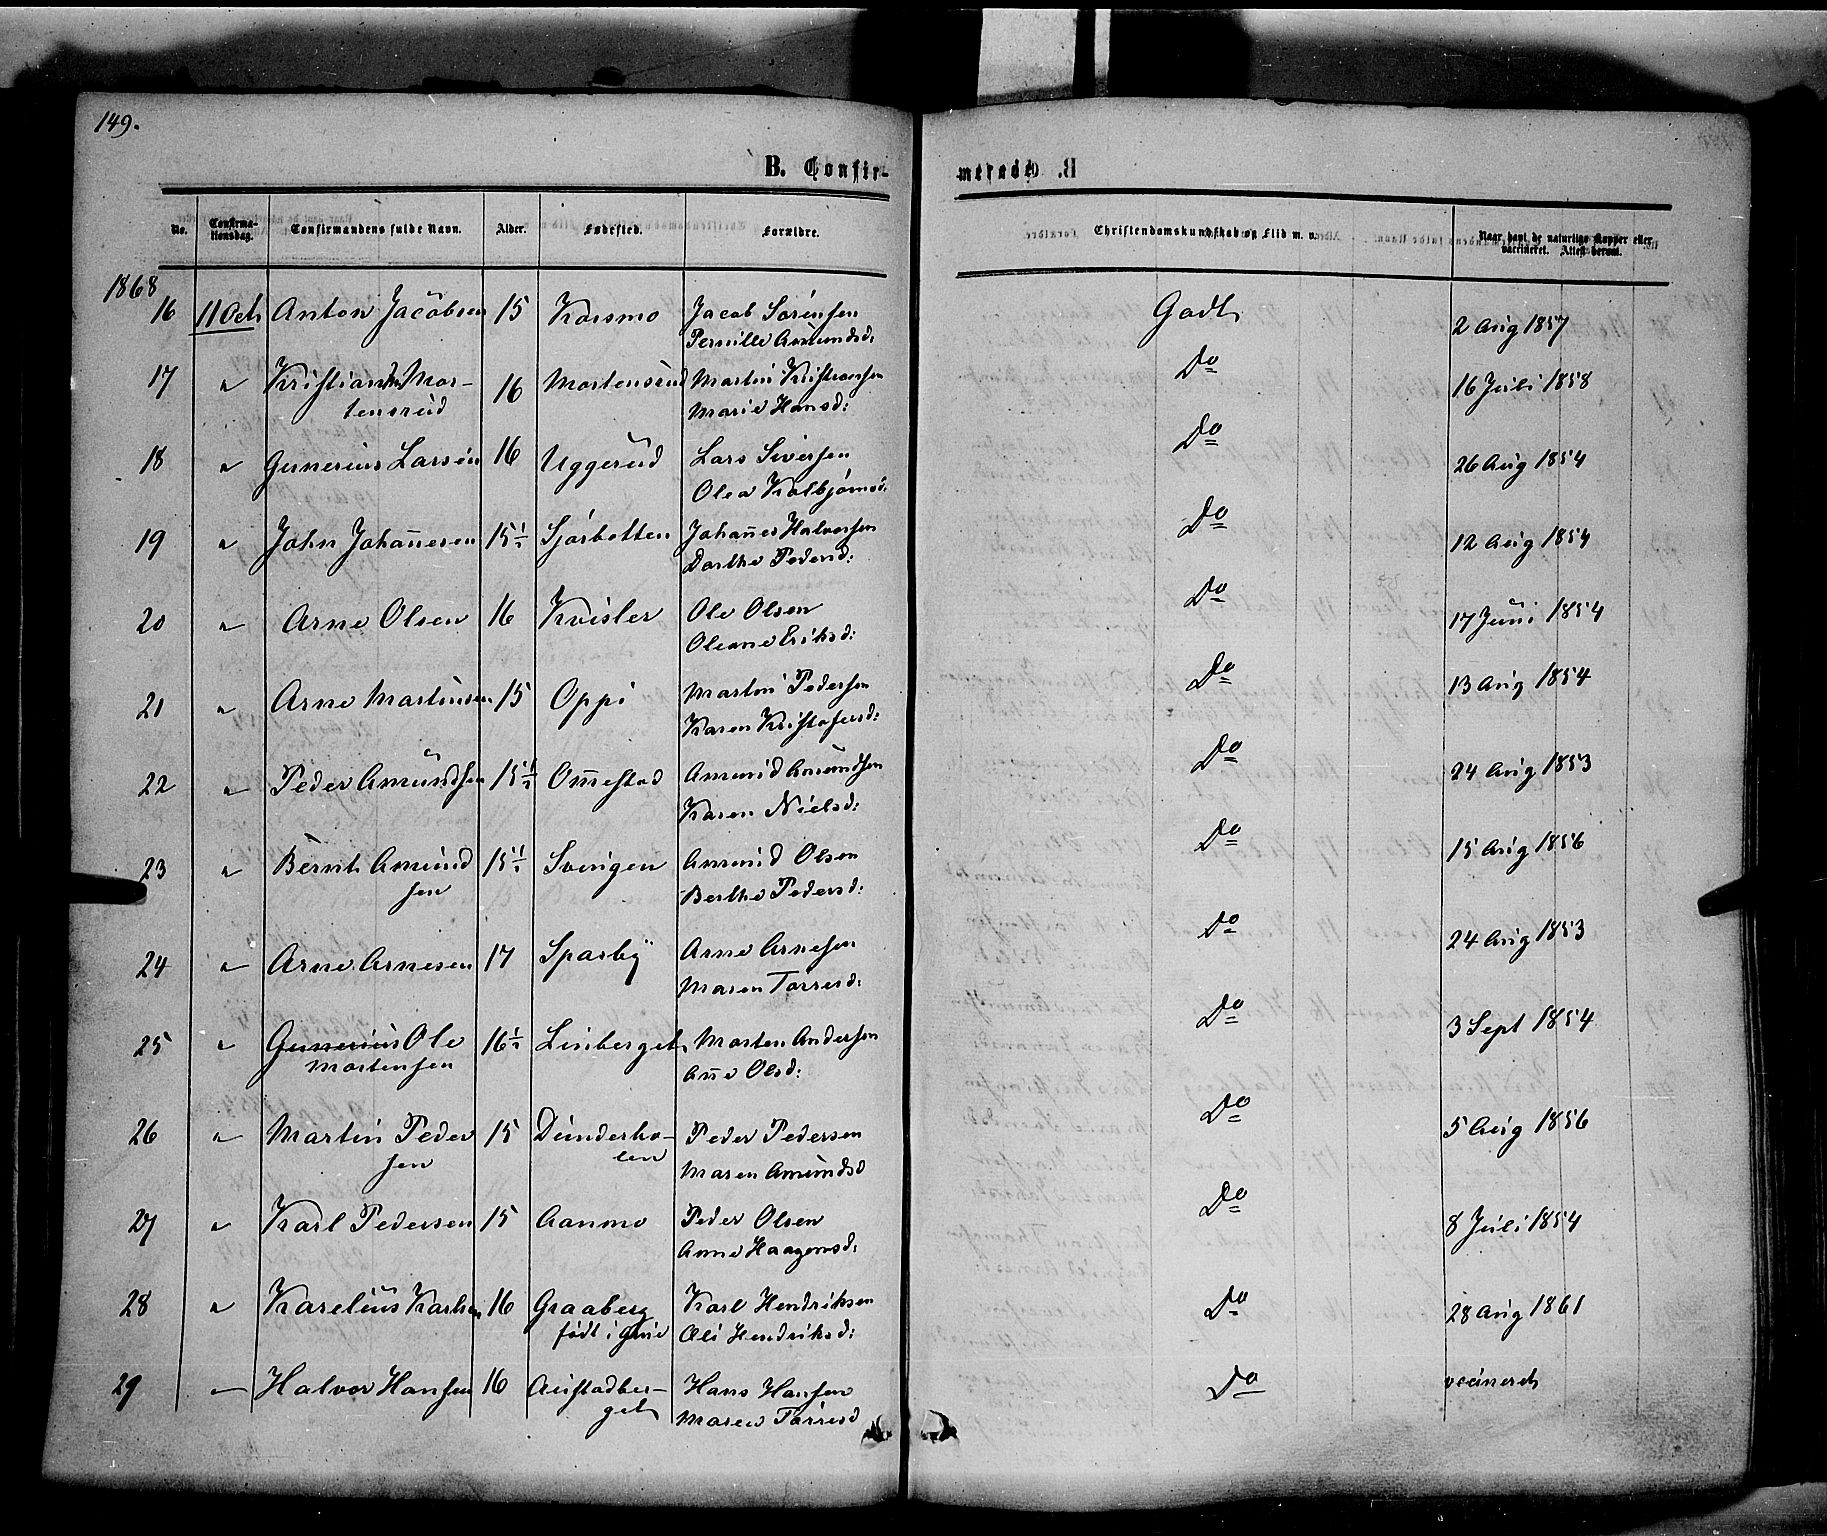 149.
B. Confir-
merede. B.
No. Confirma-tionsdag. Confirmandens fulde Navn. Alder. Fødested. Forældre. Christendomskundskab og Flid m. v. Naar havt de naturlige Kopper eller vaccineret. Attest derom.
1868
16 11 Oct Anton Jacobsen 15 Kaismo Jacob Sørensen Godt 2 Aug 1857
Pernille Amundsd:
17 " Kristian Mor- 16 Mortensrud Martin Kristiansen Do 16 Juli 1858
tensrud Marie Hansd:
18 " Gunerius Larsen 16 Uggerud Lars Siversen Do 26 Aug 1854
Olea Kolbjørnsd:
19 " John Johannesen 15½ Sjørbotten Johannes Halvorsen Do 12 Aug 1854
Dorthe Pedersd:
20 " Arne Olsen 16 Kvisler Ole Olsen Do 17 Juni 1854
Oleane Eriksd:
21 " Arne Martinsen 15 Oppi Martin Pedersen Do 13 Aug 1854
Karen Kristofersd:
22 " Peder Amundsen 15½ Ommestad Amund Amundsen Do 24 Aug 1853
Karen Nielsd:
23 " Bernt Amund 15½ Svingen Amund Olsen Do 15 Aug 1856
sen Berthe Pedersd:
24 " Arne Arnesen 17 Sparby Arne Arnesen Do 24 Aug 1853
Maren Torresd:
25 " Gunerius Ole 16½ Linberget Morten Andersen Do 3 Sept 1854
Mortensen Anne Olsd:
26 " Martin Peder 15 Dunderho- Peder Pedersen Do 5 Aug 1856
sen len Maren Amundsd
27 " Karl Pedersen 15 Aanmo Peder Olsen Do 8 Juli 1854
Anne Haagensd:
28 " Karelius Karlsen 16 Graaberg Karl Hendriksen Do 28 Aug 1861
født i Grue Oli Hendriksd:
29 — Halvor Hansen 16 Austadber- Hans Hansen Do vacineret
get Maren Torresd